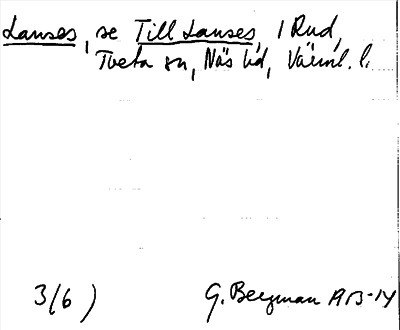 Lanses, se Till Lanses, i Rud,
Tveta sn, Näs hd, Värml. l.
3(6)
G. Bergman 1913-14